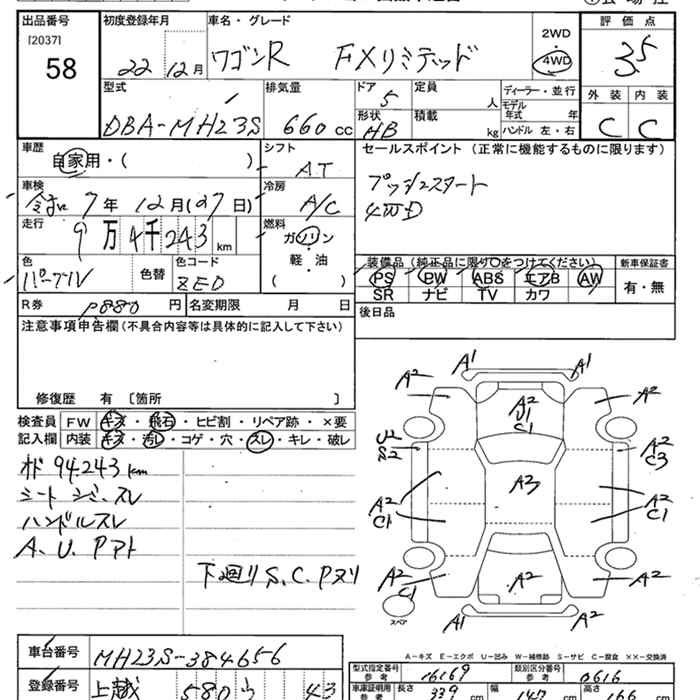 出品番号
[2037]
58
初度登録年月
22 12月
車名・グレード
ワゴンR FXリミテッド
2WD
4WD
評価点
3.5
型式
DBA-MH23S
排気量
660 cc
ドア
5
形状
HB
定員
人
積載
kg
ディーラー・並行
モデル
年式 年
ハンドル 左・右
外装 内装
C C
車歴
自家用・( )
シフト
AT
セールスポイント (正常に機能するものに限ります)
プッシュスタート
4WD
車検
令和 7年 12月(27日)
冷房
A/C
走行
9万4千243 km
燃料
ガソリン
軽・油
( )
色
パープル
色替
色コード
ZED
装備品 (純正品に限り○をつけてください)
PS PW ABS エアB AW
SR ナビ TV カワ
新車保証書
有・無
R券
円
名変期限 月 日
後日品
注意事項申告欄(不具合内容等は具体的に記入して下さい)
修復歴 有 〔箇所 〕
検査員
記入欄
FW キズ・飛石・ヒビ割・リペア跡・×要
内装 キズ・汚レ・コゲ・穴・スレ・キレ・破レ
オド 94.243km
シート シミ、スレ
ハンドルスレ
A、U、Pアト
下廻りS、C、Pヌリ
A1 A1
A2 A2
A2
U1
C1
U2
S2
A2
C3
A3
A2
C1
A2
C1
A2
C1
A2
A2
A1 A2
スペア
A-キズ E-エクボ U-凹み W-補修跡 S-サビ C-腐食 ××-交換済
車台番号
MH23S-384656
登録番号
上越 580 う 43
型式指定番号
参考
16169
類別区分番号
参考
0616
車庫証明用
参考
長さ 339 cm
幅 147 cm
高さ 166 cm